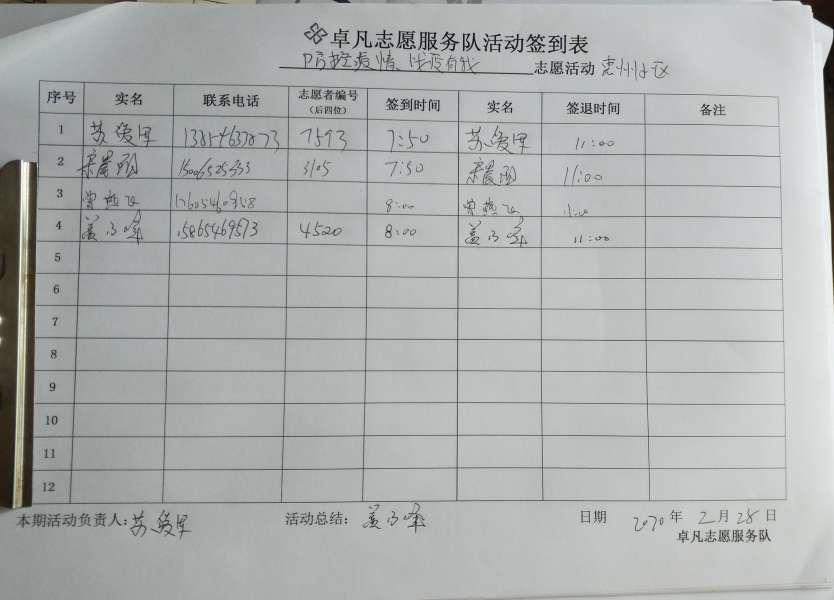 卓凡志愿服务队活动签到表
防控疫情 战疫有我 志愿活动 惠州社区
序号 实名 联系电话 志愿者编号（后四位） 签到时间 实名 签退时间 备注
1 苏爱军 13854637873 7593 7:50 苏爱军 11:00
2 宋晨雨 15006525333 3105 7:50 宋晨雨 11:00
3 曾燕飞 8:00 曾燕飞 11:00
4 姜 峰 15865469573 4520 8:00 姜 峰 11:00
5
6
7
8
9
10
11
12
本期活动负责人: 苏爱军 活动总结: 姜 峰 日期 2020 年 2 月 28 日
卓凡志愿服务队